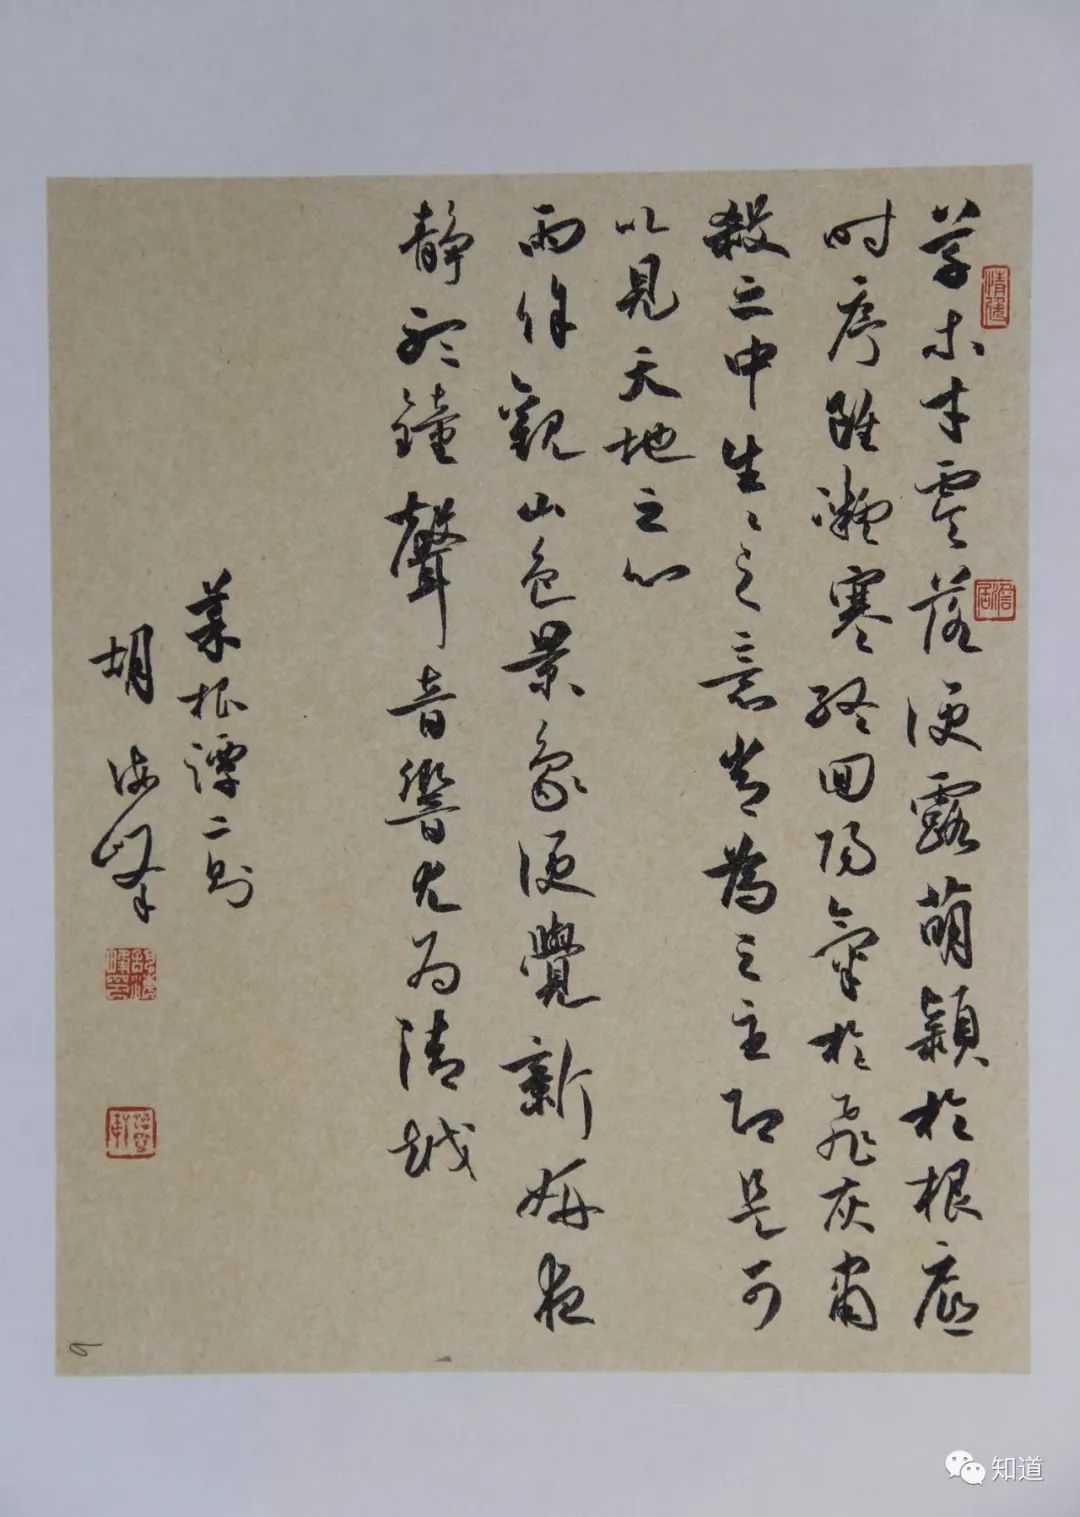 草木才零落便露萌穎於根底
时序雖凝寒終回陽氣於飛灰肅
殺之中生〻之意常為之主即是可
以見天地之心
雨餘觀山色景象便覺新妍夜
靜聽鐘聲音響尤为清越
菜根譚二則
胡海峰
知道